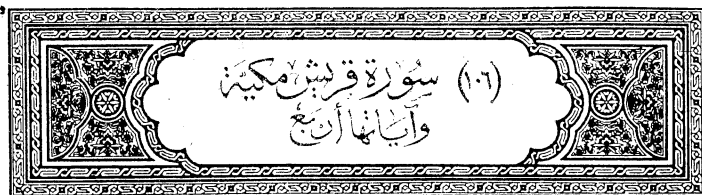 (١٠٦) سُورَة قريش مكيّة
وَآيَاتُهَا أَرْبَع